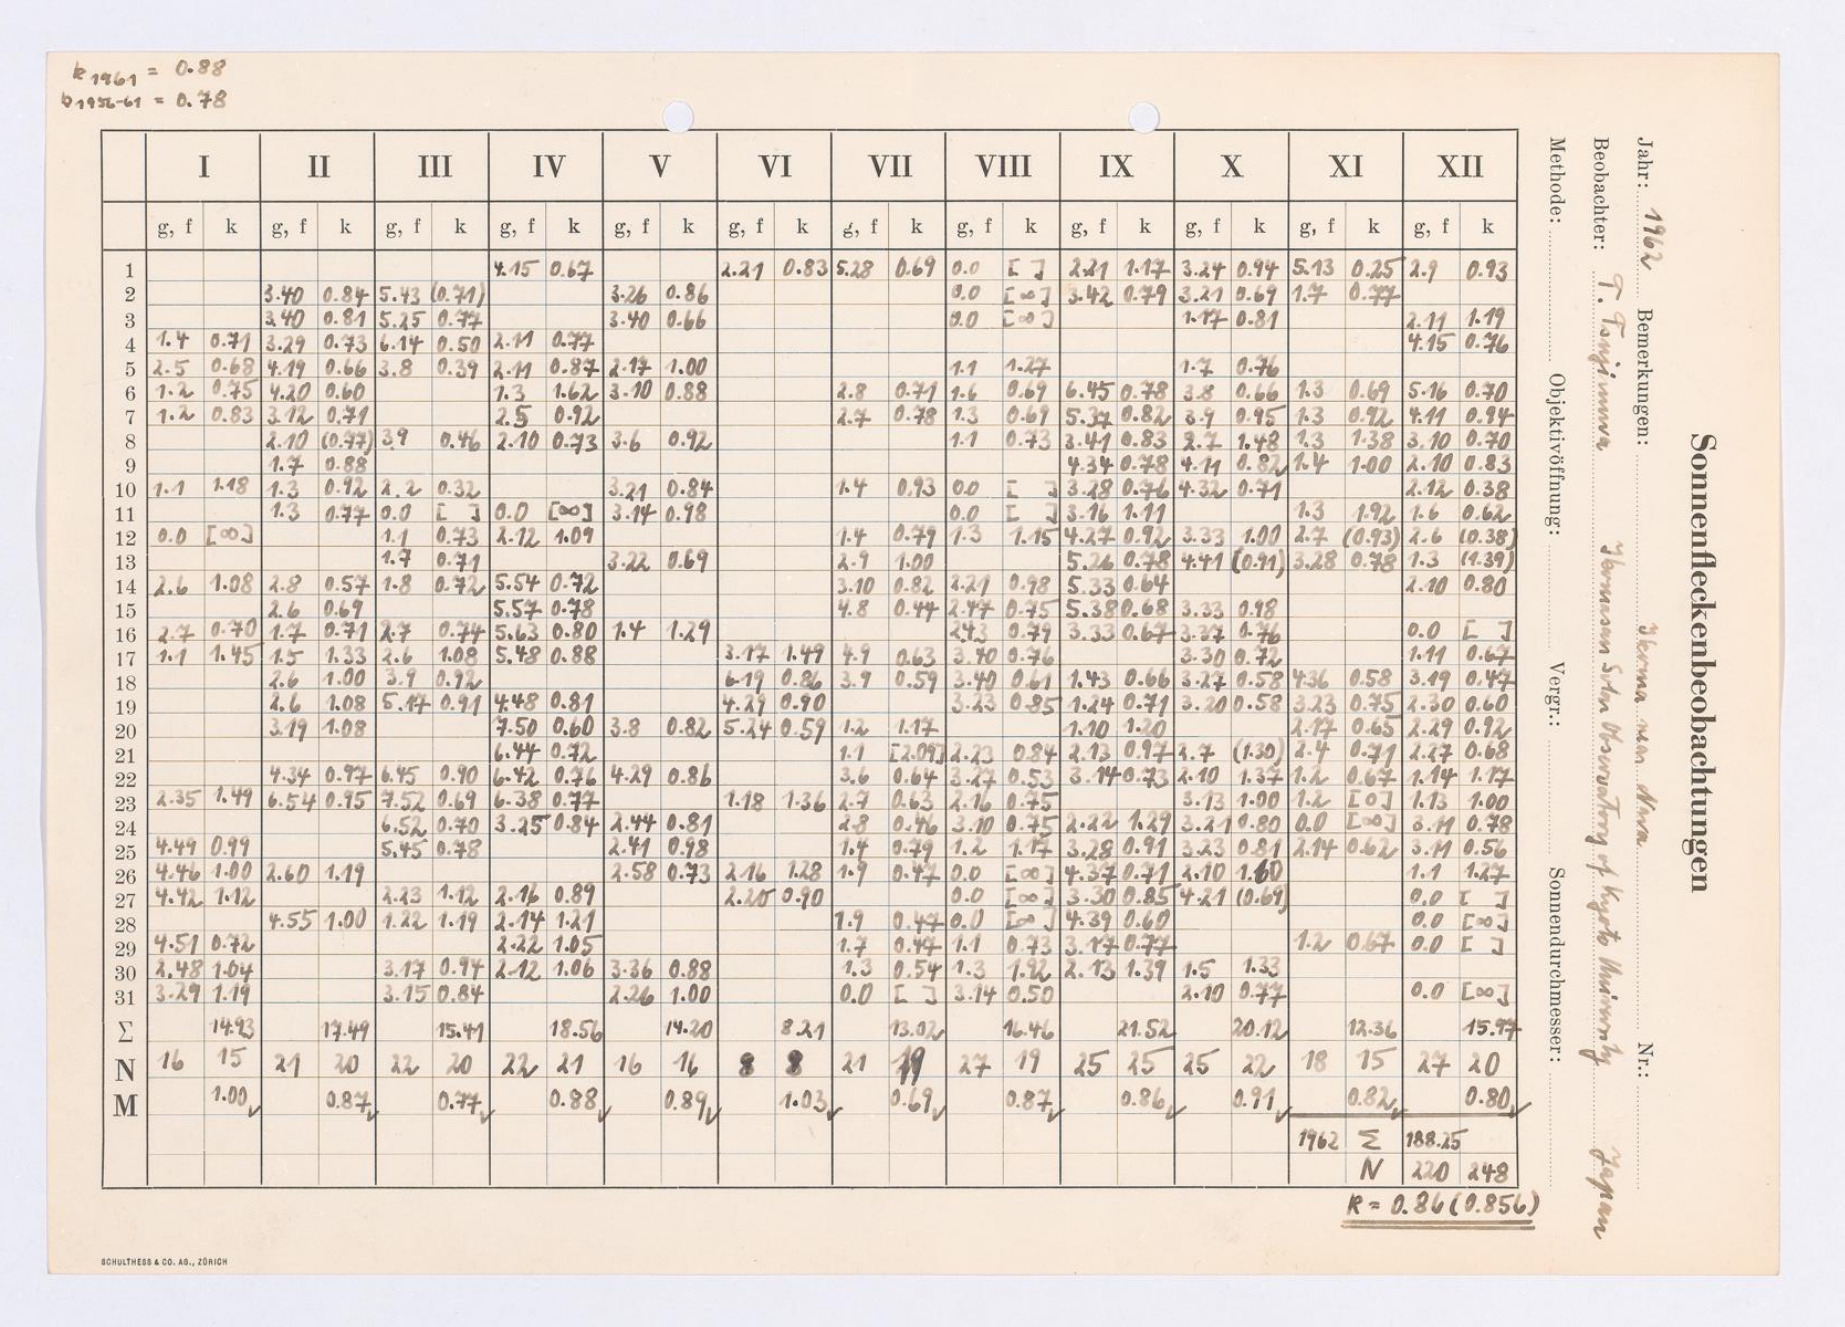 k 1961 = 0.88
b 1956-61 = 0.78
Sonnenfleckenbeobachtungen
Jahr: 1962 Bemerkungen: Nr.:
Beobachter: T. Tsujimura Observatory of Kyoto Japan
Methode: Objektivöffnung: Vergr.: Sonnendurchmesser:
I II III IV V VI VII VIII IX X XI XII
g, f k g, f k g, f k g, f k g, f k g, f k g, f k g, f k g, f k g, f k g, f k g, f k
1 4.15 0.67 2.21 0.83 5.28 0.69 0.0 [ ] 2.21 1.17 3.24 0.94 5.13 0.25 2.9 0.93
2 3.40 0.84 5.43 (0.71) 3.26 0.86 0.0 [∞] 3.42 0.79 3.21 0.69 1.7 0.77
3 3.40 0.81 5.25 0.77 3.40 0.66 0.0 [∞] 1.17 0.81 2.11 1.19
4 1.4 0.71 3.29 0.73 6.14 0.50 2.11 0.77 4.15 0.76
5 2.5 0.68 4.19 0.66 3.8 0.39 2.11 0.87 2.17 1.00 1.1 1.27 1.7 0.76
6 1.2 0.75 4.20 0.60 1.3 1.62 3.10 0.88 2.8 0.71 1.6 0.69 6.45 0.78 3.8 0.66 1.3 0.69 5.16 0.70
7 1.2 0.83 3.12 0.71 2.5 0.92 2.7 0.78 1.3 0.69 5.37 0.82 3.9 0.95 1.3 0.92 4.11 0.94
8 2.10 (0.77) 3.9 0.46 2.10 0.73 3.6 0.92 1.1 0.73 3.41 0.83 2.7 1.48 1.3 1.38 3.10 0.70
9 1.7 0.88 4.34 0.78 4.11 0.82 1.4 1.00 2.10 0.83
10 1.1 1.18 1.3 0.92 2.2 0.32 3.21 0.84 1.4 0.93 0.0 [ ] 3.28 0.76 4.32 0.71 2.12 0.38
11 1.3 0.77 0.0 [ ] 0.0 [∞] 3.14 0.98 0.0 [ ] 3.16 1.11 1.3 1.92 1.6 0.62
12 0.0 [∞] 1.1 0.73 2.12 1.09 1.4 0.79 1.3 1.15 4.27 0.92 3.33 1.00 2.7 (0.93) 2.6 (0.38)
13 1.7 0.71 3.22 0.69 2.9 1.00 5.26 0.78 4.41 (0.91) 3.28 0.78 1.3 (1.39)
14 2.6 1.08 2.8 0.57 1.8 0.72 5.54 0.72 3.10 0.82 2.21 0.98 5.33 0.64 2.10 0.80
15 2.6 0.69 5.57 0.78 4.8 0.44 2.47 0.75 5.38 0.68 3.33 0.98
16 2.7 0.70 1.7 0.71 2.7 0.74 5.63 0.80 1.4 1.29 2.43 0.79 3.33 0.67 3.37 0.76 0.0 [ ]
17 1.1 1.45 1.5 1.33 2.6 1.08 5.48 0.88 3.17 1.49 4.9 0.63 3.40 0.76 3.30 0.72 1.11 0.67
18 2.6 1.00 3.9 0.92 6.19 0.86 3.9 0.59 3.40 0.61 1.43 0.66 3.27 0.58 4.36 0.58 3.19 0.47
19 2.6 1.08 5.17 0.91 4.48 0.81 4.29 0.90 3.23 0.85 1.24 0.71 3.20 0.58 3.23 0.75 2.30 0.60
20 3.19 1.08 7.50 0.60 3.8 0.82 5.24 0.59 1.2 1.17 1.10 1.20 2.17 0.65 2.29 0.92
21 6.44 0.72 1.1 [2.09] 2.23 0.84 2.13 0.97 2.7 (1.30) 2.4 0.71 2.27 0.68
22 4.34 0.97 6.45 0.90 6.42 0.76 4.29 0.86 3.6 0.64 3.27 0.53 3.14 0.73 2.10 1.37 1.2 0.67 1.14 1.17
23 2.35 1.49 6.54 0.95 7.52 0.69 6.38 0.77 1.18 1.36 2.7 0.63 2.16 0.75 3.13 1.00 1.2 [0] 1.13 1.00
24 6.52 0.70 3.25 0.84 2.44 0.81 2.8 0.46 3.10 0.75 2.22 1.29 3.21 0.80 0.0 [∞] 3.11 0.78
25 4.49 0.99 5.45 0.78 2.41 0.98 1.4 0.79 1.2 1.17 3.28 0.91 3.23 0.81 2.14 0.62 3.11 0.56
26 4.46 1.00 2.60 1.19 2.58 0.73 2.16 1.28 1.9 0.47 0.0 [∞] 4.37 0.71 2.10 1.60 1.1 1.27
27 4.42 1.12 2.23 1.12 2.16 0.89 2.20 0.90 0.0 [∞] 3.30 0.85 4.21 (0.69) 0.0 [ ]
28 4.55 1.00 1.22 1.19 2.14 1.21 1.9 0.47 0.0 [∞] 4.39 0.60 0.0 [∞]
29 4.51 0.72 2.22 1.05 1.7 0.47 1.1 0.73 3.17 0.77 1.2 0.67 0.0 [ ]
30 2.48 1.04 3.17 0.94 2.12 1.06 3.36 0.88 1.3 0.54 1.3 1.92 2.13 1.39 1.5 1.33
31 3.29 1.19 3.15 0.84 2.26 1.00 0.0 [ ] 3.14 0.50 2.10 0.77 0.0 [∞]
Σ 14.93 17.49 15.41 18.56 14.20 8.21 13.02 16.46 21.52 20.12 12.36 15.97
N 16 15 21 20 22 20 22 21 16 16 8 8 21 19 27 19 25 25 25 22 18 15 27 20
M 1.00✓ 0.87✓ 0.77✓ 0.88✓ 0.89✓ 1.03✓ 0.69✓ 0.87✓ 0.86✓ 0.91✓ 0.82✓ 0.80✓
1962 Σ 188.25
N 220 248
K = 0.86 (0.856)
SCHULTHESS & CO. AG., ZÜRICH